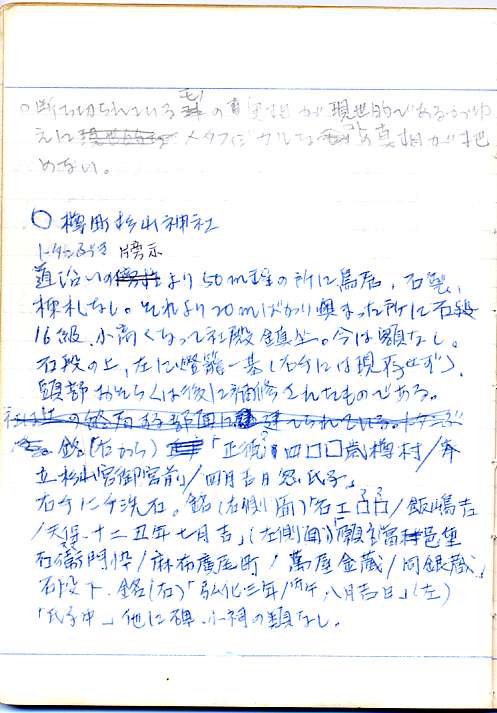 ○断ち切られているものの真相が現世的であるがゆ
えにメタフィジカルなの真相が把
めない。
○ 樽町杉山神社
トタンぶき 傍示
道沿いのより50m程の所に鳥居、石製、
標札なし。それより20mばかり奥まった所に石段
16級、小高くなって社殿鎮坐。今は額なし。
石段の上、左に燈籠一基(右手には現存せず)、
頭部おそらくは後に補修されたものである。
銘(右から)「正徳 四 □□歳樽村/奉
立杉山宮御宮前/四月吉日 惣氏子」
右手に手洗石。銘(右側面)「石工 /飯嶋吉
/天保十二丑年七月吉」(左側面)「願主當邑
右衛門/麻布廣尾町/萬屋金蔵/同銀蔵」
石段下、銘(右)「弘化三年/丙午八月吉日」(左)
「氏子中」他に碑、小祠の類なし。